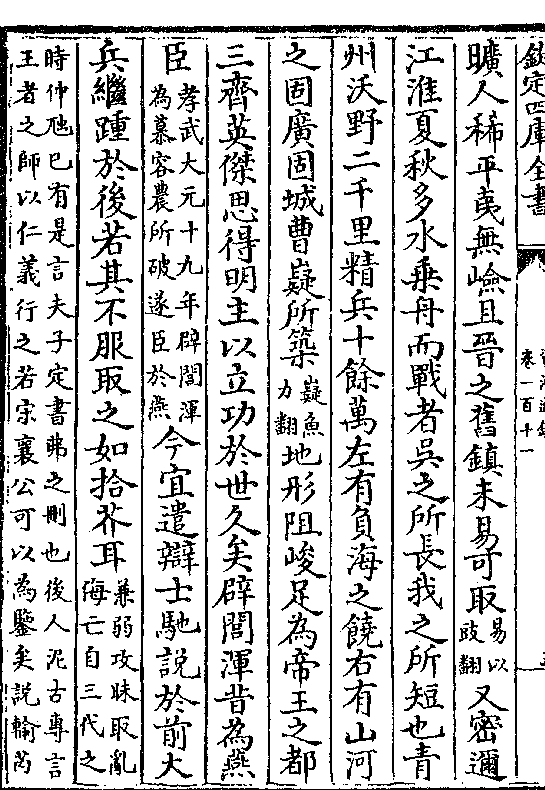 欽定四庫全書
卷一百十一
曠人稀平夷無嶮且晉之舊鎮未易可取易以豉翻又密邇
江淮夏秋多水乗舟而戰者吳之所長我之所短也青
州沃野二千里精兵十餘萬左有負海之饒右有山河
之固廣固城曹嶷所築嶷魚力翻地形阻峻足為帝王之都
三齊英傑思得明主以立功於世久矣辟閭渾昔為燕
臣孝武大元十九年辟閭渾為慕容農所破遂臣於燕今宜遣辯士馳說於前大
兵繼踵於後若其不服取之如拾芥耳兼弱攻昧取亂侮亡自三代之
時仲虺已有是言夫子定書弗之刪也後人泥古專言
王者之師以仁義行之若宋襄公可以為鑒矣說輸芮